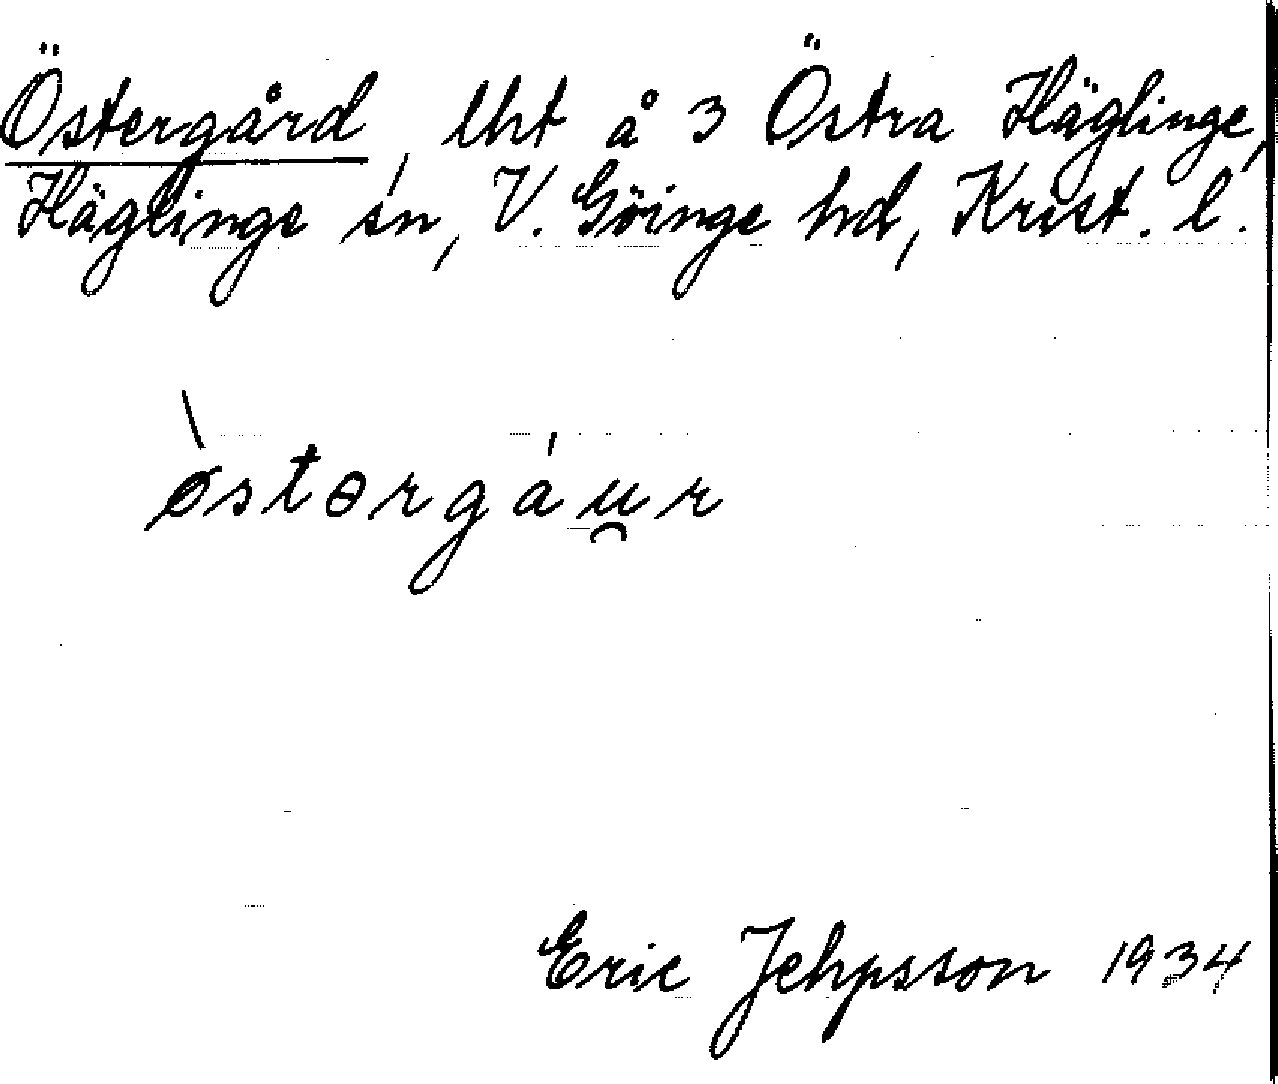 Östergård, lht å 3 Östra Häglinge,
Häglinge sn, V. Göinge hd, Krist. l.
ø̀stərgáu̯r
Eric Jehpsson 1934